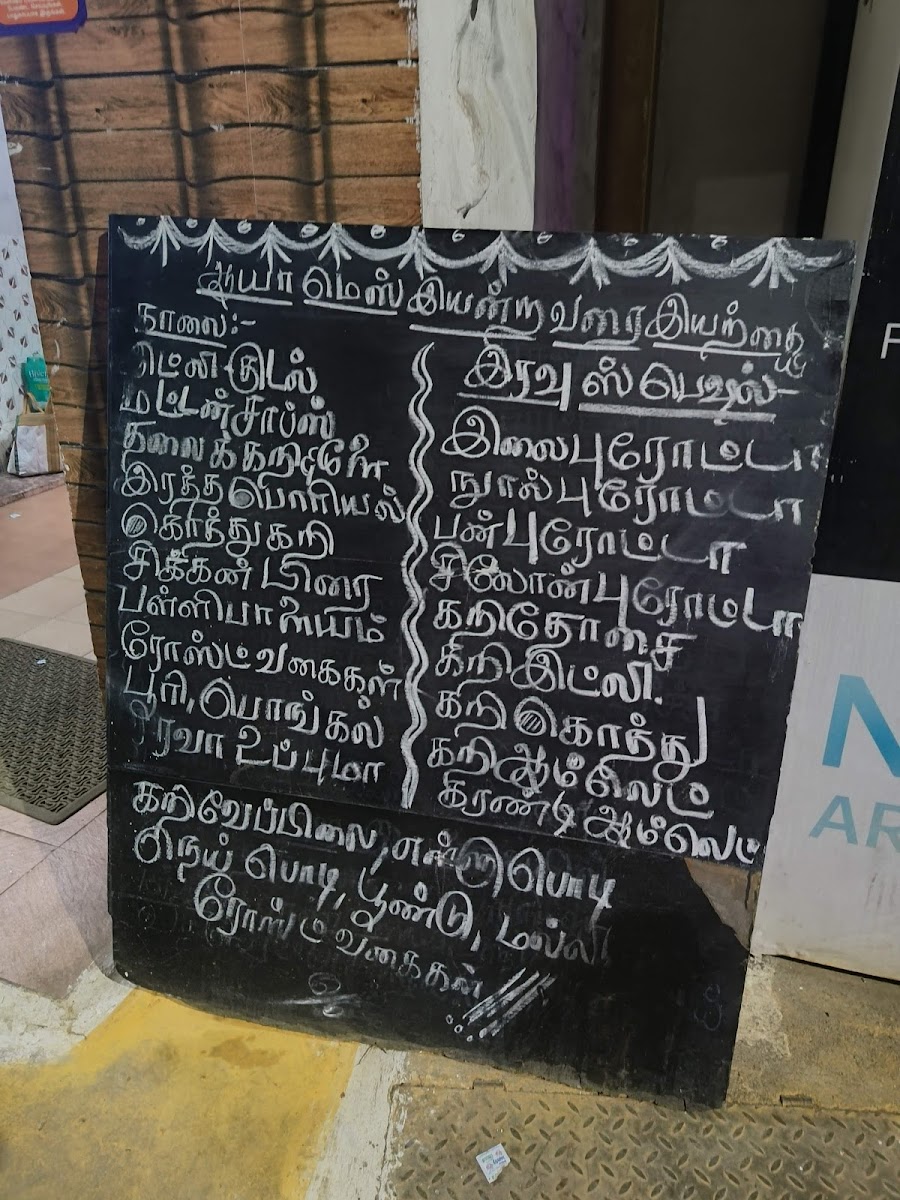 ஆயா மெஸ் இயன்ற வரை இயற்கை
காலை:-
குடல்
மட்டன் சாப்ஸ்
தலைக்கறி மூளை
இரத்த பொரியல்
கொந்து கறி
சிக்கன் பிரை
பள்ளிபாளையம்
ரோஸ்ட் வகைகள்
பூரி, பொங்கல்
ரவா உப்புமா
இரவு ஸ்பெஷல்-
இலை புரோட்டா
நூல் புரோட்டா
பன் புரோட்டா
சிலோன் புரோட்டா
கறி தோசை
கறி இட்லி.
கறி கொந்து
கறி ஆம்லெட்
கரண்டி ஆம்லெட்
கறிவேப்பிலை, எள்ளு பொடி
நெய் பொடி, பூண்டு, மல்லி
ரோஸ்ட் வகைகள்
N
AR